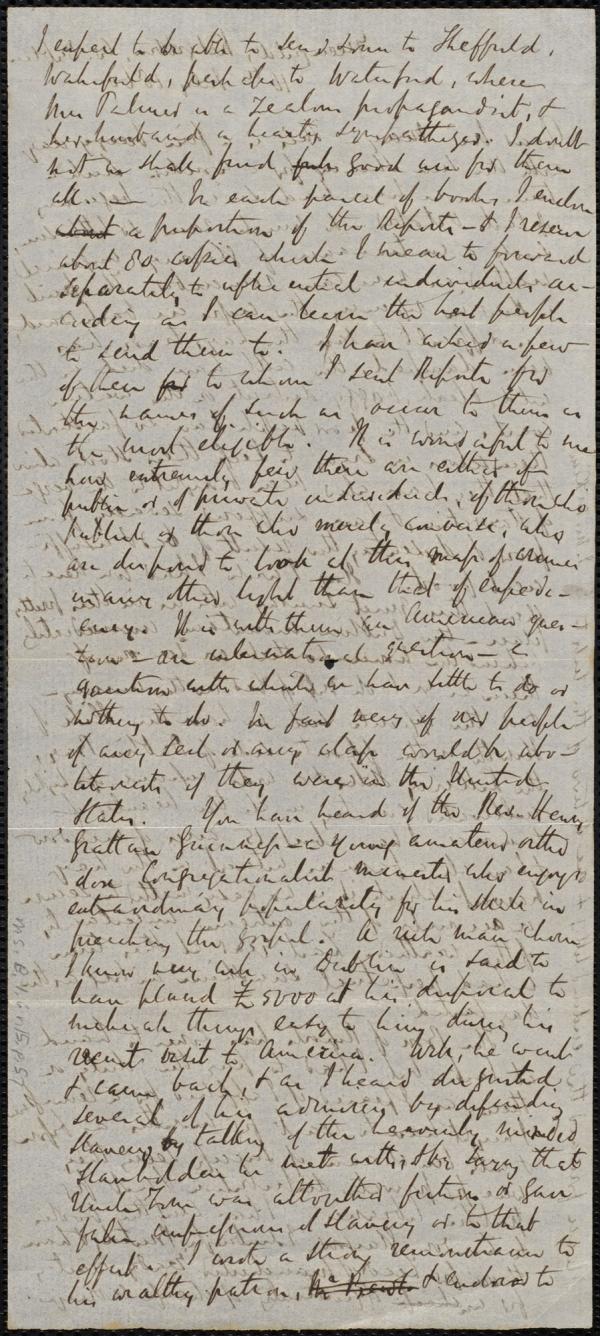 I expect to be able to send some to Sheffield,
Wakefield, perhaps to Waterford, where
Mrs Palmer is a zealous propagandist, &
her husband a hearty sympathizer. I doubt
not we shall find good use for them
all. — In each parcel of books I enclose
about a proportion of the Reports – & I reserve
about 80 copies which I mean to forward
separately to influential individuals ac-
cording as I can learn the best people
to send them to. I have asked a few
of them for to whom I sent Reports for
the names of such as occur to them as
the most eligible. It is wonderful to me
how extremely few there are either of
public or of private individuals, of those who
publish or those who merely converse, who
are disposed to look at this mass of crimes
in any other light than that of expedi-
ency. It is with them an American ques-
tion – an international question – a
question with which we have little to do or
nothing to do. In fact very of our people
of any sect or any class would be abo-
litionists if they were in the United
States. You have heard of the Rev. Henry
Grattan Guinness – a young amateur ortho
dox Congregationalist minister who enjoys
extraordinary popularity for his style in
preaching the gospel. A rich man whom
I know very well in Dublin is said to
have placed £5000 at his disposal to
make things easy to him during his
recent visit to America. Well, he went
& came back, & as I heard disgusted
several of his admirers by defending
slavery by talking of the heavenly minded
slaveholders he met with, & by saying that
Uncle Tom was altogether fiction or gave
false impressions of slavery or to that
effect. I wrote a strong remonstrance to
his wealthy patron, & endorsed to